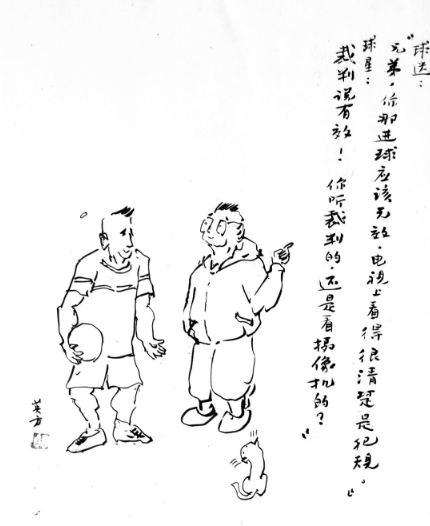 球迷：
“兄弟，你那进球应该无效，电视上看得很清楚是犯规。”
球星：
裁判说有效！你听裁判的，还是看摄像机的？”
英方